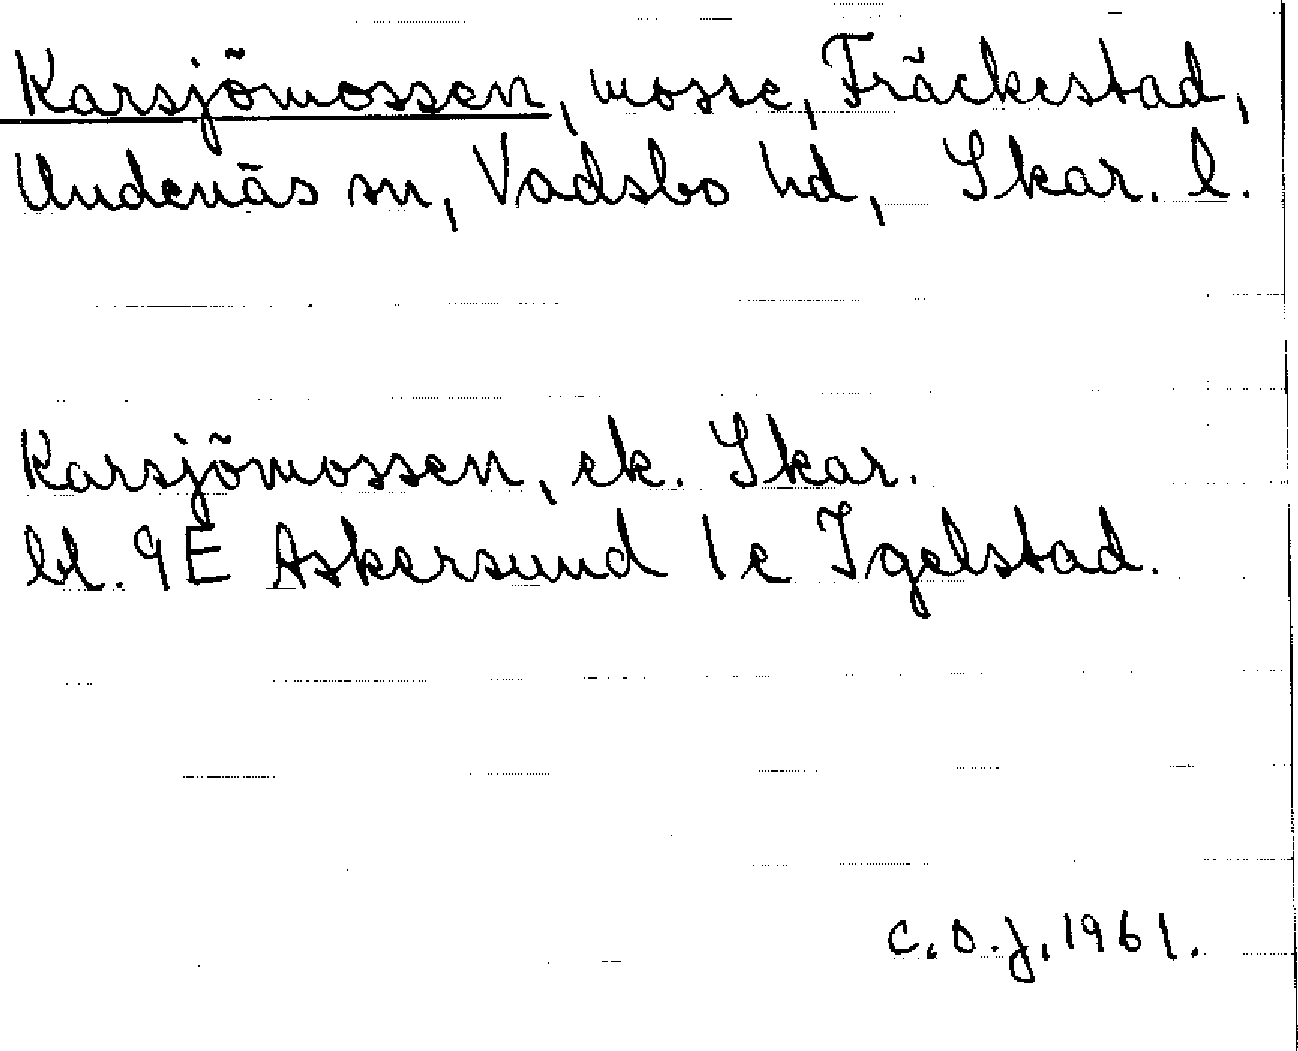 Karsjömossen, mosse, Fräckestad,
Undenäs sn, Vadsbo hd, Skar. l.
Karsjömossen, ek. Skar.
bl. 9E Askersund 1e Igelstad.
C.O.J. 1961.